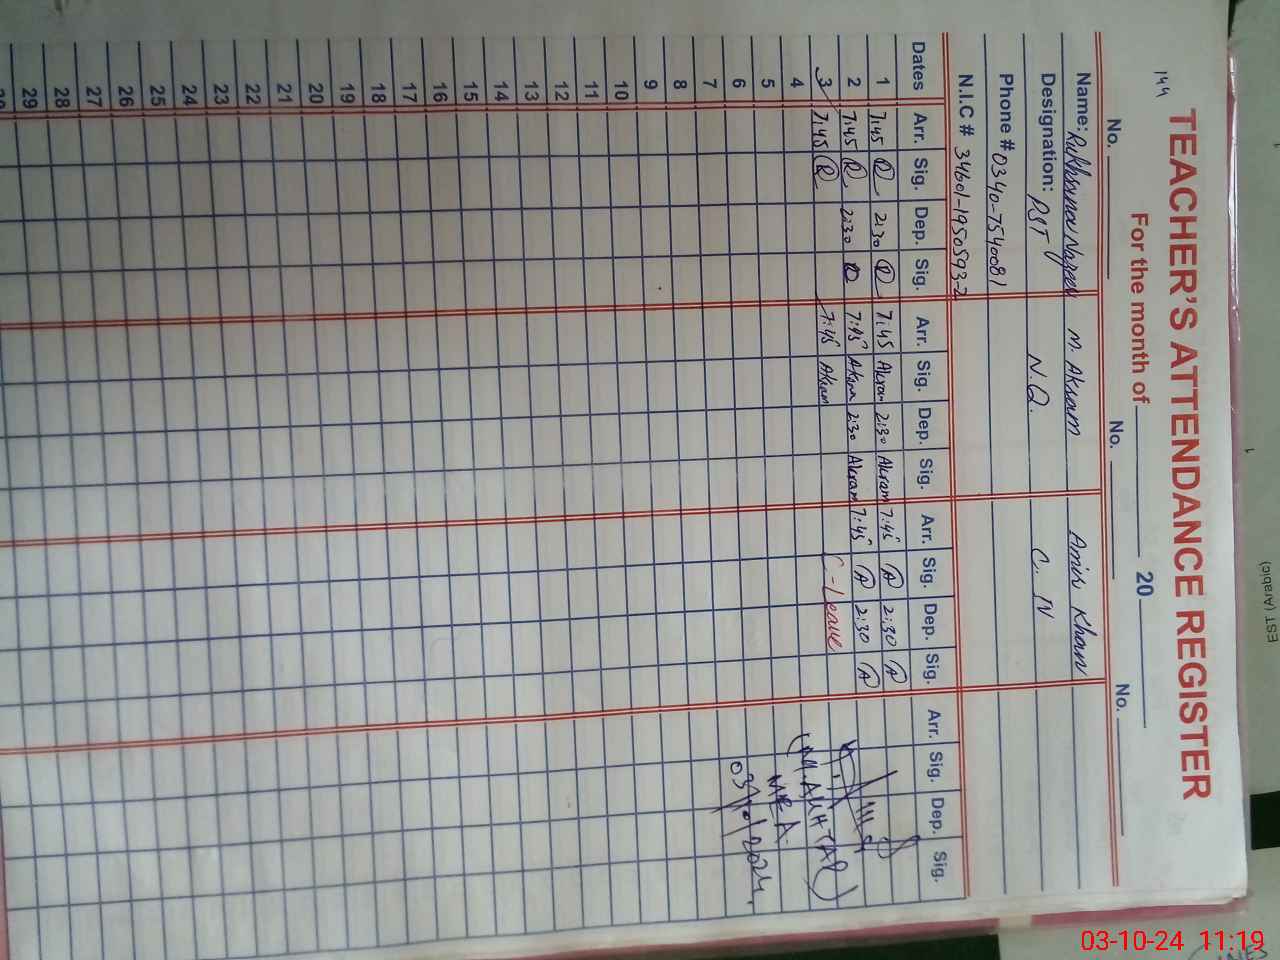 149
TEACHER'S ATTENDANCE REGISTER
For the month of 20
No. No. No.
Name: Rukhsana Nazeer M. Akram Amir Khan
Designation: PST N.Q. C. IV
Phone # 0340-7540081
N.I.C # 34601-1950593-2
Dates Arr. Sig. Dep. Sig. Arr. Sig. Dep. Sig. Arr. Sig. Dep. Sig. Arr. Sig. Dep. Sig.
1 7:45 R 2:30 R 7:45 Akram 2:30 Akram 7:45 A 2:30 A
2 7:45 R 2:30 R 7:45 Akram 2:30 Akram 7:45 A 2:30 A
3 7:45 R 7:45 Akram C-Leave
4 (M. AKHTAR)
5 MEA
6 03/10/2024.
7
8
9
10
11
12
13
14
15
16
17
18
19
20
21
22
23
24
25
26
27
28
29
30
EST (Arabic)
03-10-24 11:19